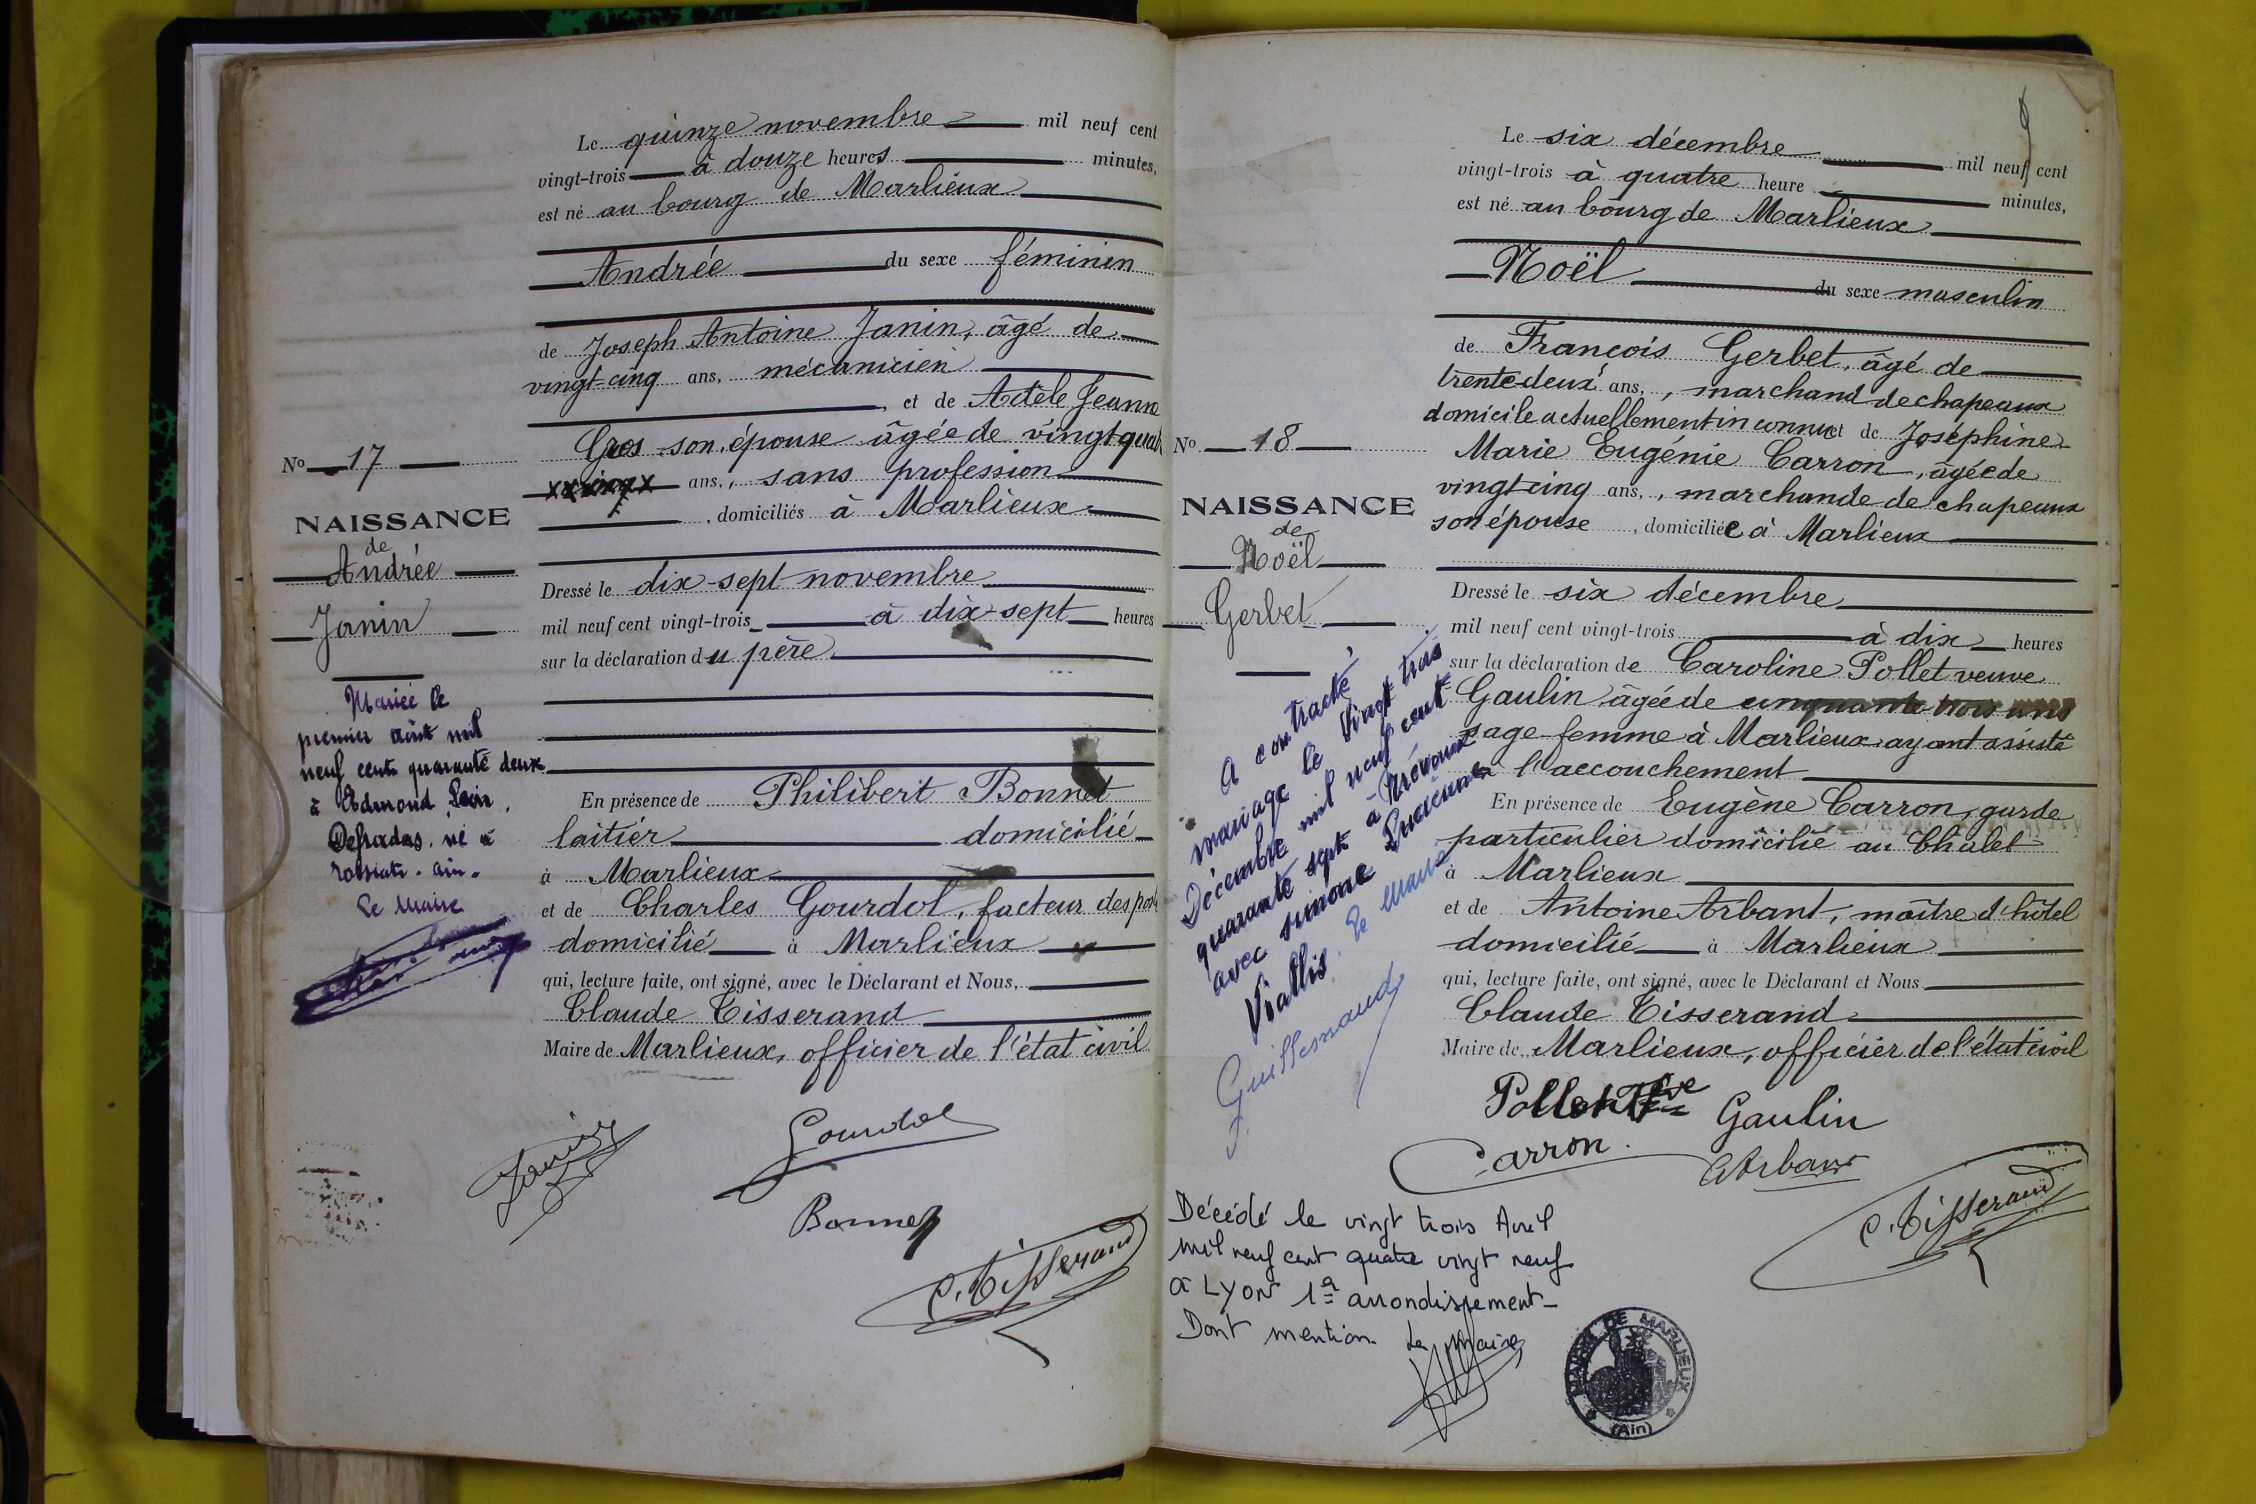 Le quinze novembre mil neuf cent
vingt-trois à douze heures minutes,
est né au bourg de Marlieux
Andrée du sexe féminin
de Joseph Antoine Janin, âgé de
vingt-cinq ans, mécanicien
, et de Adèle Jeanne
Gros son épouse âgée de vingt quatre
ans, , sans profession
, domiciliés à Marlieux
Dressé le dix-sept novembre
mil neuf cent vingt-trois à dix-sept heures
sur la déclaration du père
En présence de Philibert Bonnet
laitier domicilié
à Marlieux
et de Charles Gourdol, facteur des postes
domicilié à Marlieux
qui, lecture faite, ont signé, avec le Déclarant et Nous,
Claude Tisserand
Maire de Marlieux, officier de l'état civil
Janin
Gourdol
Bonnet
C. Tisserand
No 17
NAISSANCE
de
Andrée
Janin
Mariée le
premier août mil
neuf cent quarante deux
à Edmond
Defradas, né à
ain.
Le Maire
Le six décembre mil neuf cent
vingt-trois à quatre heure minutes,
est né au bourg de Marlieux
Noël du sexe masculin
de François Gerbet, âgé de
trente-deux ans, , marchand de chapeaux
domicile actuellement inconnu et de Joséphine
Marie Eugénie Carron, âgée de
vingt-cinq ans, , marchande de chapeaux
son épouse , domiciliée à Marlieux
Dressé le six décembre
mil neuf cent vingt-trois à dix heures
sur la déclaration de Caroline Pollet veuve
Gaulin âgée de cinquante trois ans
sage-femme à Marlieux ayant assisté
à l'accouchement
En présence de Eugène Carron, garde
particulier domicilié au Chalet
à Marlieux
et de Antoine Arbant, maître d'hôtel
domicilié à Marlieux
qui, lecture faite, ont signé, avec le Déclarant et Nous
Claude Tisserand
Maire de Marlieux, officier de l'état civil
Pollet Vve Gaulin
Carron
Arbant
C. Tisserand
No 18
NAISSANCE
de
Noël
Gerbet
A contracté
mariage le vingt trois
Décembre mil neuf cent
quarante sept à Trévoux
avec Simone Lucienne
Viallis. Le Maire
Guillermaud
Décédé le vingt trois Avril
mil neuf cent quatre vingt neuf
à LYON 1er arrondissement
Dont mention Le Maire
MAIRIE DE MARLIEUX
(Ain)